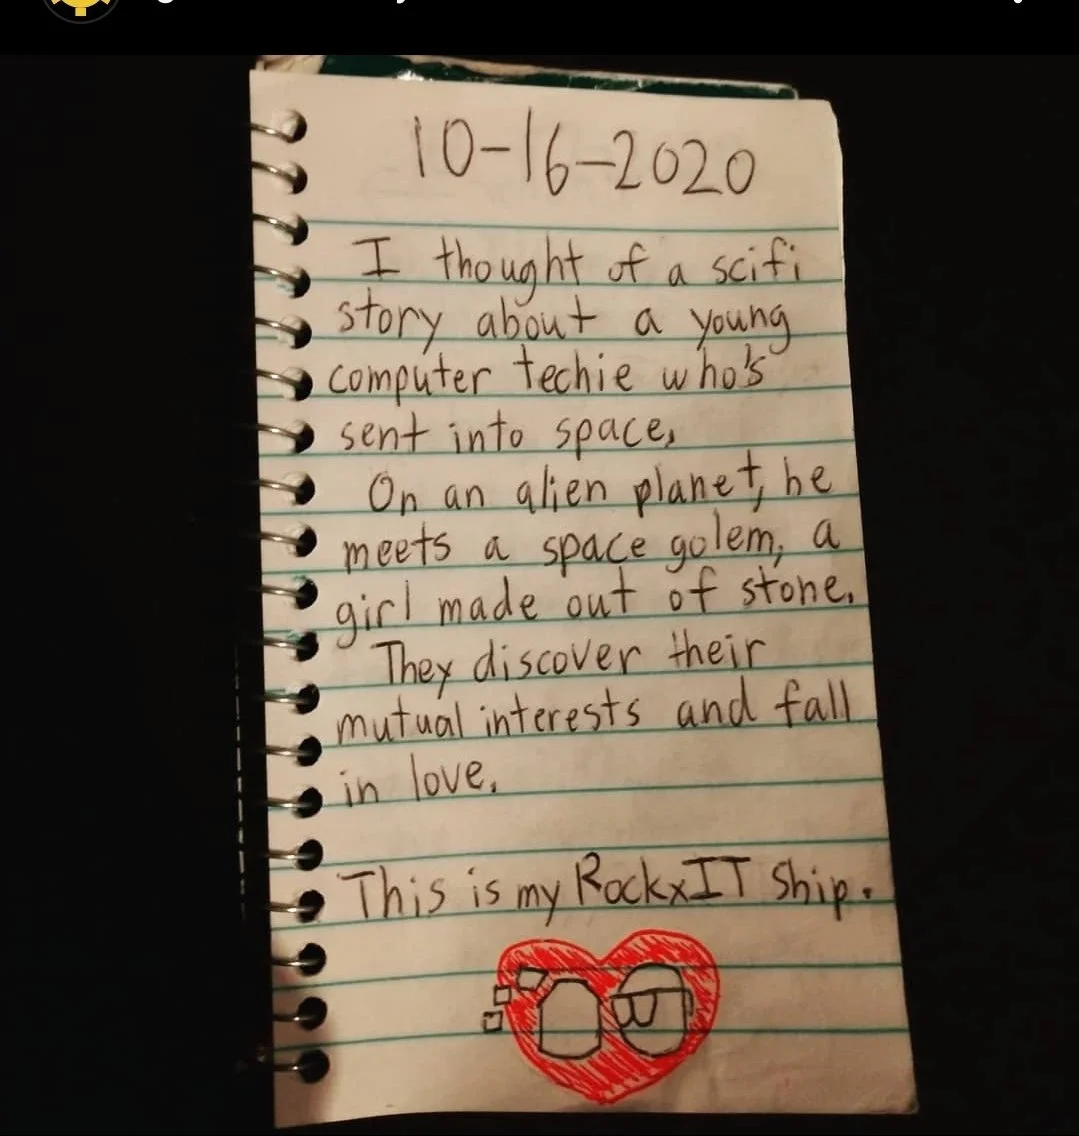 10-16-2020
I thought of a scifi
story about a young
computer techie who's
sent into space.
On an alien planet, he
meets a space golem, a
girl made out of stone.
They discover their
mutual interests and fall
in love.
This is my RockxIT Ship.